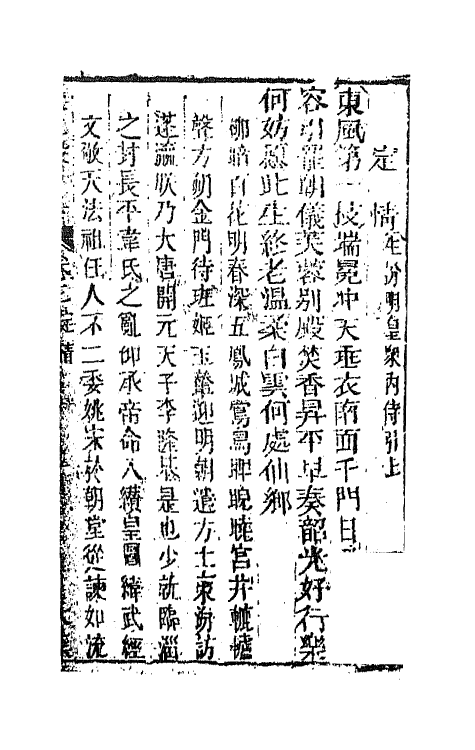 定　情 生扮明皇衆內侍引上
東風第一枝端冕冲天垂衣南面千門日
容引龍朝儀芙蓉別殿焚香昇平早奏韶光好行樂
何妨願此生終老溫柔白雲何處仙鄉
柳暗百花明春深五鳳城鶯烏睥睨曉宮井轆轤
聲方朔金門待班姬玉輦迎明朝遣方士東訪
蓬瀛朕乃大唐開元天子李隆基是也少就臨淄
之封長平韋氏之亂仰承帝命入纘皇圖緯武經
文敬天法祖任人不二委姚宋於朝堂從諫如流
定情